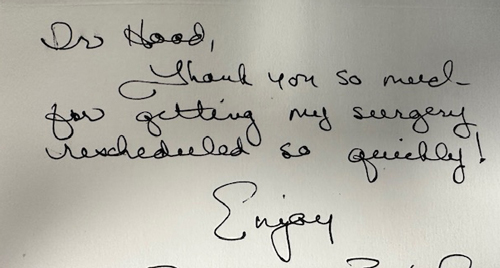 Dr Hood,
Thank you so much
for getting my surgery
rescheduled so quickly!
Enjoy